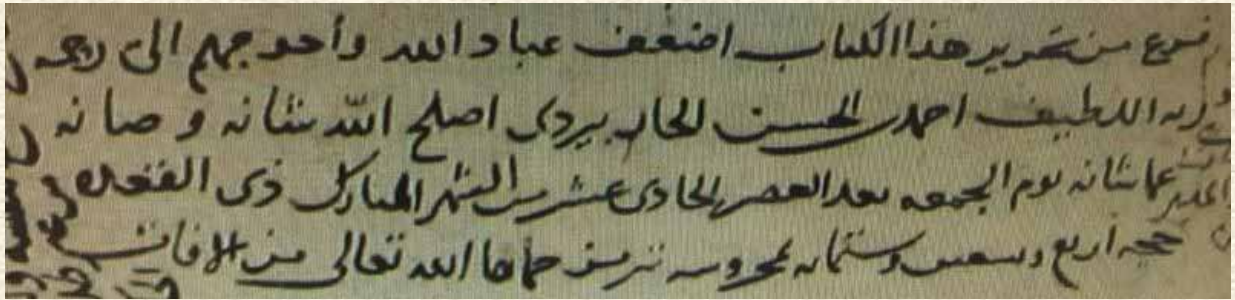 فرغ من تحرير هذا الكتاب اضعف عباد الله وأحوجهم الى رحمة
ربه اللطيف احمد بن الحسن الجاربردى اصلح الله شانه و صانه
عما شانه يوم الجمعه بعد العصر الحادى عشر من الشهر المبارك ذى القعده
حجه اربع وسبعين وستمائه بمحروسه تبريز حماها الله تعالى من الافات